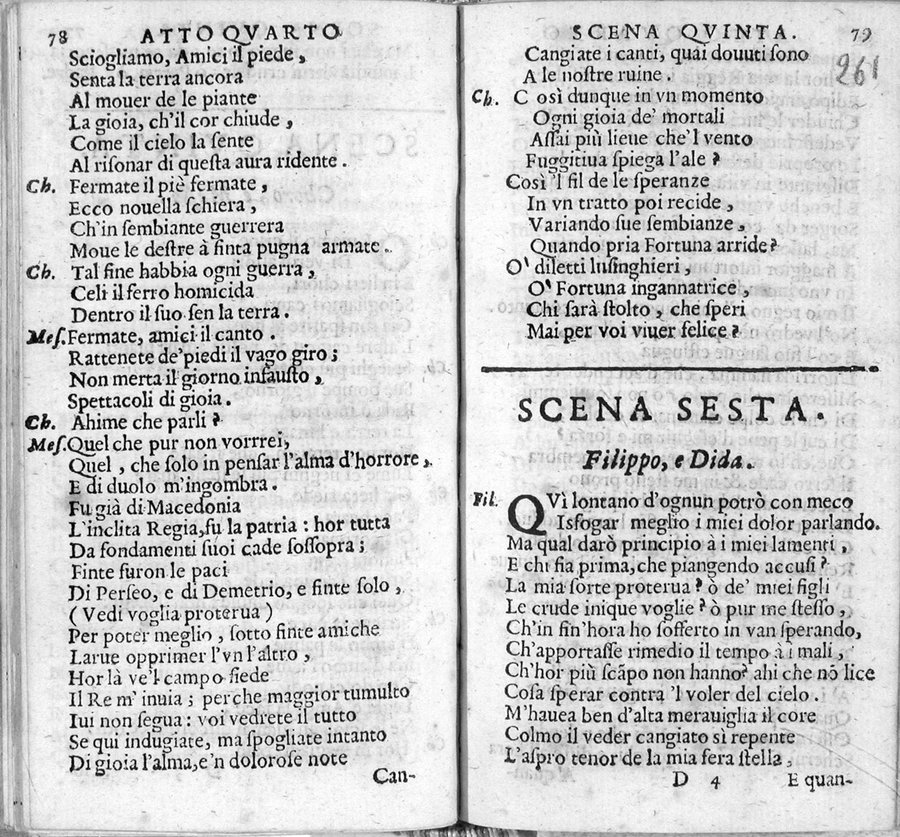 78 ATTO QVARTO
Sciogliamo, Amici il piede,
Senta la terra ancora
Al mouer de le piante
La gioia, ch'il cor chiude,
Come il cielo la sente
Al risonar di questa aura ridente.
Ch. Fermate il piè fermate,
Ecco nouella schiera,
Ch'in sembiante guerrera
Moue le destre à finta pugna armate.
Ch. Tal fine habbia ogni guerra,
Celi il ferro homicida
Dentro il suo sen la terra.
Mes. Fermate, amici il canto.
Rattenete de' piedi il vago giro;
Non merta il giorno infausto,
Spettacoli di gioia.
Ch. Ahime che parli?
Mes. Quel che pur non vorrei,
Quel, che solo in pensar l'alma d'horrore,
E di duolo m'ingombra.
Fu già di Macedonia
L'inclita Regia, fu la patria: hor tutta
Da fondamenti suoi cade sossopra;
Finte furon le paci
Di Perseo, e di Demetrio, e finte solo,
(Vedi voglia proterua)
Per poter meglio, sotto finte amiche
Larue opprimer l'vn l'altro,
Hor là ve'l campo siede
Il Re m'inuia; perche maggior tumulto
Iui non segua: voi vedrete il tutto
Se qui indugiate, ma spogliate intanto
Di gioia l'alma, e'n dolorose note
Can-
SCENA QVINTA. 79
261
Cangiate i canti, quai douuti sono
A le nostre ruine.
Ch. Così dunque in vn momento
Ogni gioia de' mortali
Assai più lieue che'l vento
Fuggitiua spiega l'ale?
Così 'l fil de le speranze
In vn tratto poi recide,
Variando sue sembianze,
Quando pria Fortuna arride?
O' diletti lusinghieri,
O' Fortuna ingannatrice,
Chi sarà stolto, che speri
Mai per voi viuer felice?
SCENA SESTA.
Filippo, e Dida.
Fil. QVì lontano d'ognun potrò con meco
Isfogar meglio i miei dolor parlando.
Ma qual darò principio à i miei lamenti,
E chi fia prima, che piangendo accusi?
La mia sorte proterua? ò de' miei figli
Le crude inique voglie? ò pur me stesso,
Ch'in fin'hora ho sofferto in van sperando,
Ch'apportasse rimedio il tempo à i mali,
Ch'hor più scãpo non hanno? ahi che nõ lice
Cosa sperar contra 'l voler del cielo.
M'hauea ben d'alta merauiglia il core
Colmo il veder cangiato sì repente
L'aspro tenor de la mia fera stella,
D 4 E quan-